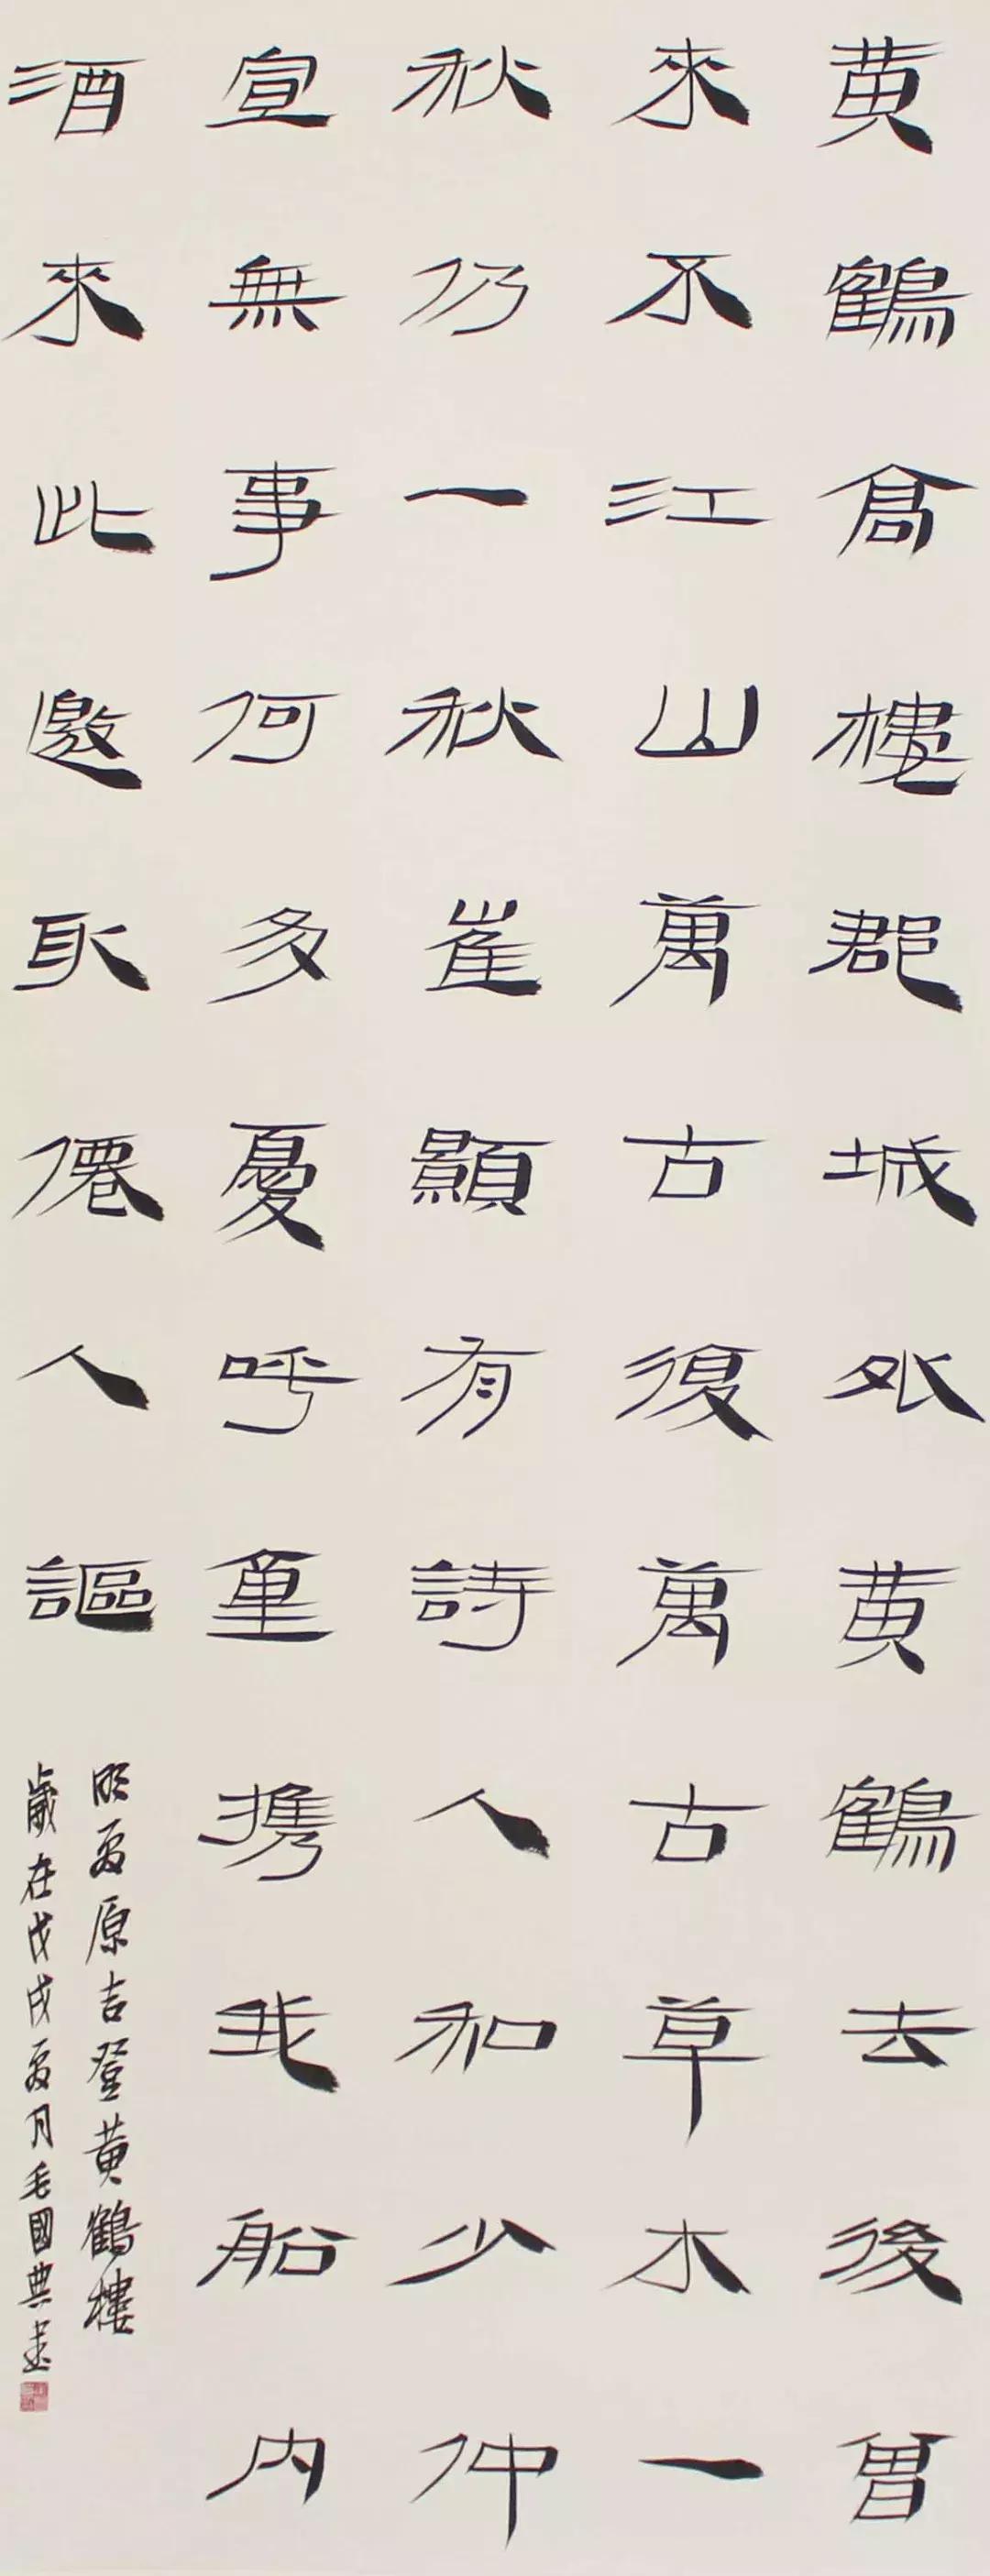 黄鶴高樓郡城外黄鶴去後曾
來不江山萬古復萬古草木一
秋仍一秋崔顥有詩人和少仲
宣無事何多憂呼童携我船内
酒來此邀取僊人謳
明夏原吉登黄鶴樓
歲在戊戌夏月毛國典書